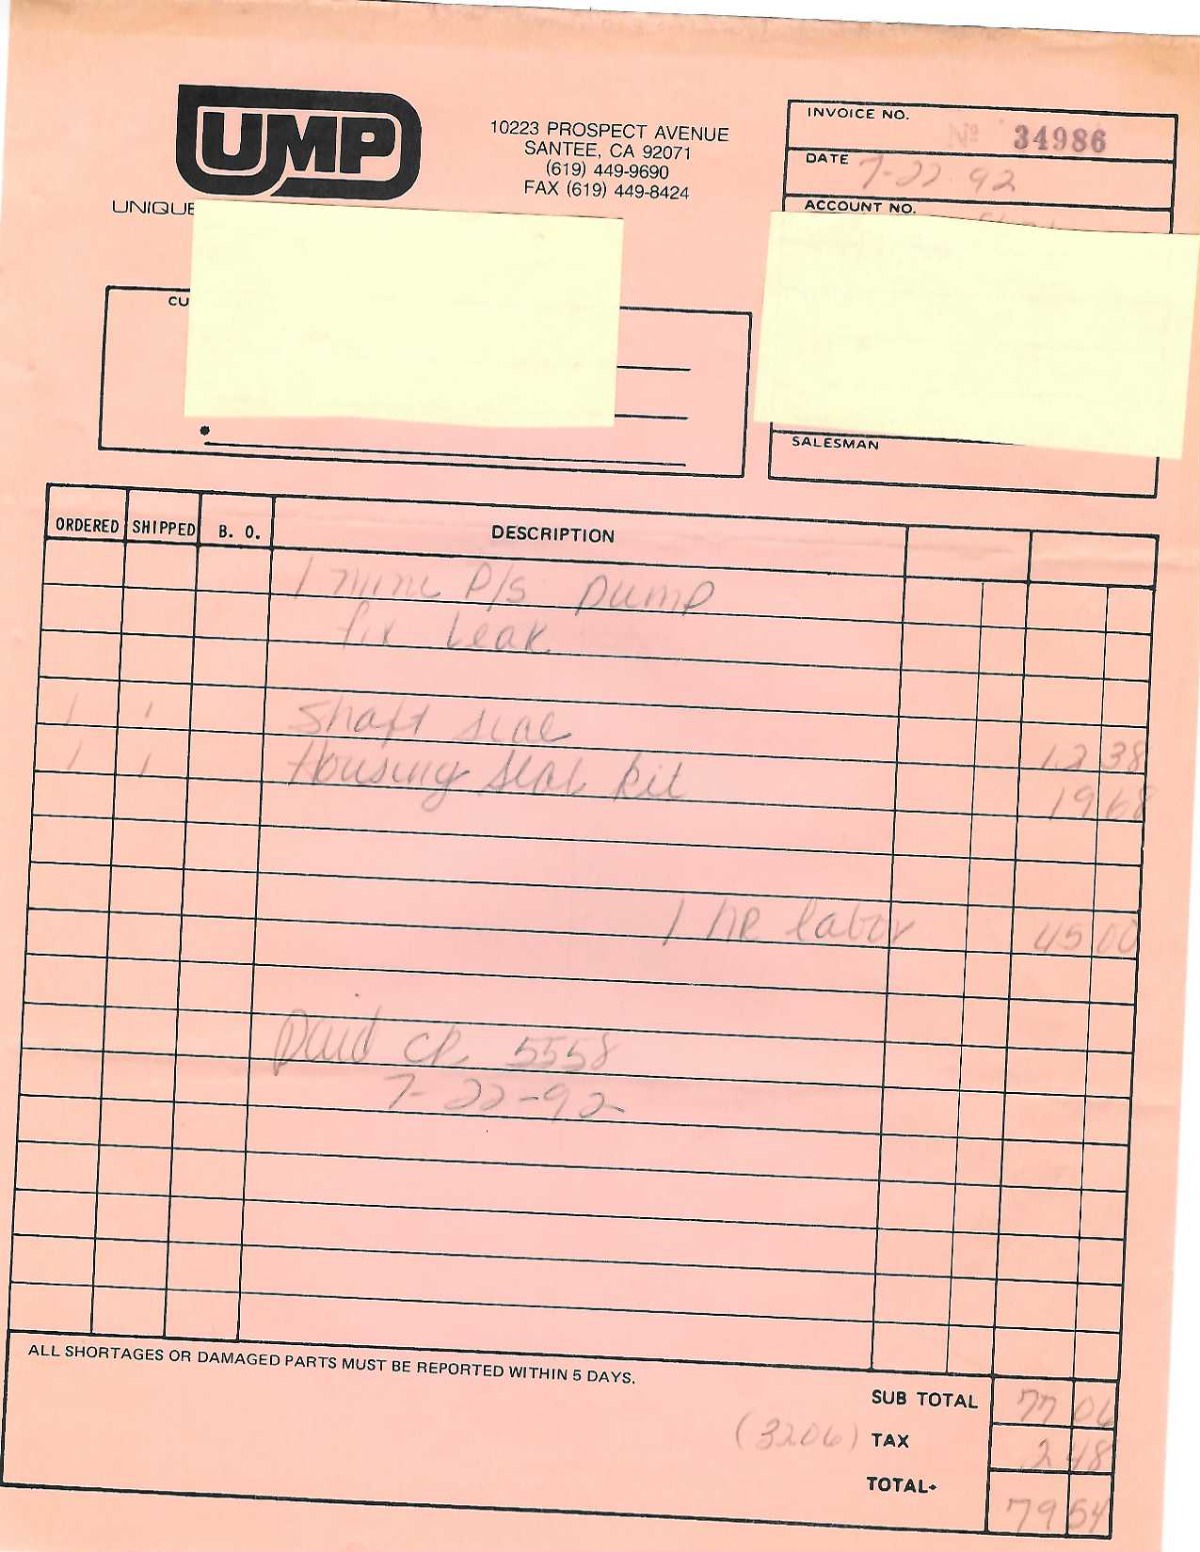 UMP
10223 PROSPECT AVENUE
SANTEE, CA 92071
(619) 449-9690
FAX (619) 449-8424
UNIQUE
INVOICE NO.
Nº 34986
DATE 7-22 92
ACCOUNT NO.
CU
SALESMAN
ORDERED SHIPPED B. O. DESCRIPTION
1 mine P/s pump
fix Leak
1 1 Shaft seal 12 38
1 1 Housing seal kit 19 68
1 HR labor 45 00
Paid CK 5558
7-22-92
ALL SHORTAGES OR DAMAGED PARTS MUST BE REPORTED WITHIN 5 DAYS.
SUB TOTAL 77 06
(3206) TAX 2 48
TOTAL 79 54